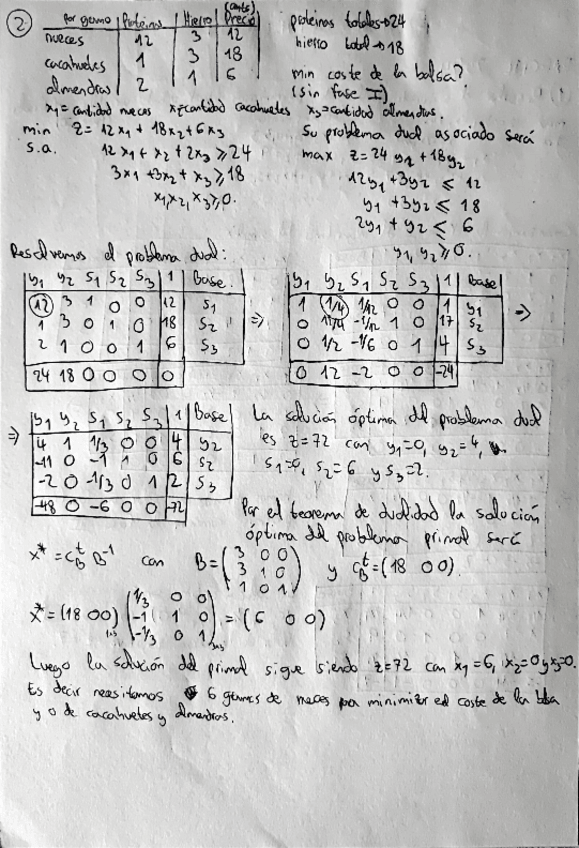 ② Por gramo | Proteínas | Hierro | (cents) Precio
nueces 12 3 12
cacahuetes 1 3 18
almendras 2 1 6
proteinas totales→24
hierro total→18
min coste de la bolsa?
(sin fase I)
x₁=cantidad nueces x₂=cantidad cacahuetes x₃=cantidad almendras.
min Z=12x₁+18x₂+6x₃
s.a. 12x₁+x₂+2x₃≥24
3x₁+3x₂+x₃≥18
x₁,x₂,x₃≥0.
Su problema dual asociado será
max z=24y₁+18y₂
12y₁+3y₂≤12
y₁+3y₂≤18
2y₁+y₂≤6
y₁,y₂≥0.
Resolvemos el problema dual:
y₁ y₂ S₁ S₂ S₃ 1 Base
12 3 1 0 0 12 S₁
1 3 0 1 0 18 S₂
2 1 0 0 1 6 S₃
24 18 0 0 0 0
⇒
y₁ y₂ S₁ S₂ S₃ 1 Base
1 1/4 1/12 0 0 1 y₁
0 11/4 -1/12 1 0 17 S₂
0 1/2 -1/6 0 1 4 S₃
0 12 -2 0 0 -24
⇒
⇒
y₁ y₂ S₁ S₂ S₃ 1 Base
4 1 1/3 0 0 4 y₂
-11 0 -1 1 0 6 S₂
-2 0 -1/3 0 1 2 S₃
-48 0 -6 0 0 -72
La solución óptima del problema dual
es z=72 con y₁=0, y₂=4,
S₁=0, S₂=6 y S₃=2.
Por el teorema de dualidad la solución
óptima del problema primal será
x*=C_B^t B⁻¹ con B=(3 0 0
3 1 0
1 0 1) y C_B^t=(18 0 0).
x*=(18 0 0)₁ₓ₃ (1/3 0 0
-1 1 0
-1/3 0 1)₃ₓ₃ = (6 0 0)
Luego la solución del primal sigue siendo z=72 con x₁=6, x₂=0 y x₃=0.
Es decir necesitamos 6 gramos de nueces para minimizar el coste de la bolsa
y 0 de cacahuetes y almendras.